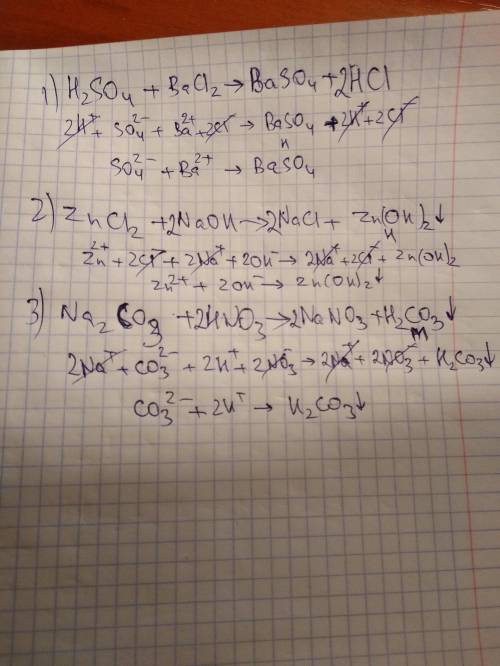 1) H₂SO₄ + BaCl₂ → BaSO₄ + 2HCl
2H⁺ + SO₄²⁻ + Ba²⁺ + 2Cl⁻ → BaSO₄ + 2H⁺ + 2Cl⁻
н
SO₄²⁻ + Ba²⁺ → BaSO₄
2) ZnCl₂ + 2NaOH → 2NaCl + Zn(OH)₂↓
н
Zn²⁺ + 2Cl⁻ + 2Na⁺ + 2OH⁻ → 2Na⁺ + 2Cl⁻ + Zn(OH)₂
Zn²⁺ + 2OH⁻ → Zn(OH)₂↓
3) Na₂CO₃ + 2HNO₃ → 2NaNO₃ + H₂CO₃↓
м
2Na⁺ + CO₃²⁻ + 2H⁺ + 2NO₃⁻ → 2Na⁺ + 2NO₃⁻ + H₂CO₃↓
CO₃²⁻ + 2H⁺ → H₂CO₃↓